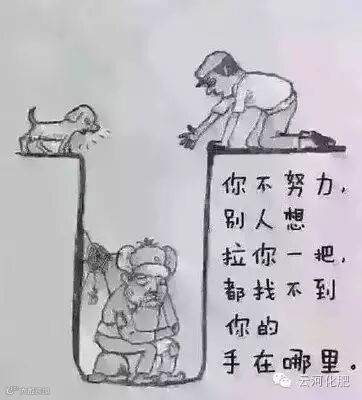 你不努力，
别人想
拉你一把，
都找不到
你的
手在哪里。
云河化肥